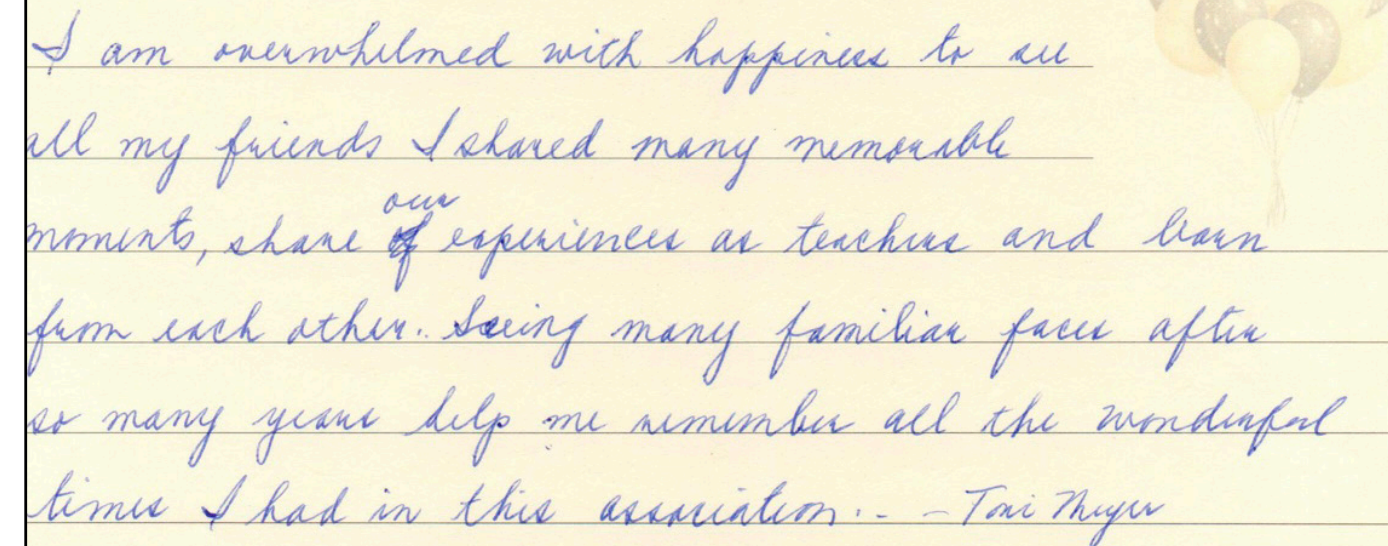 I am overwhelmed with happiness to see
all my friends I shared many memorable
moments, share our experiences as teachers and learn
from each other. Seeing many familiar faces after
so many years help me remember all the wonderful
times I had in this association. - - Toni Meyer